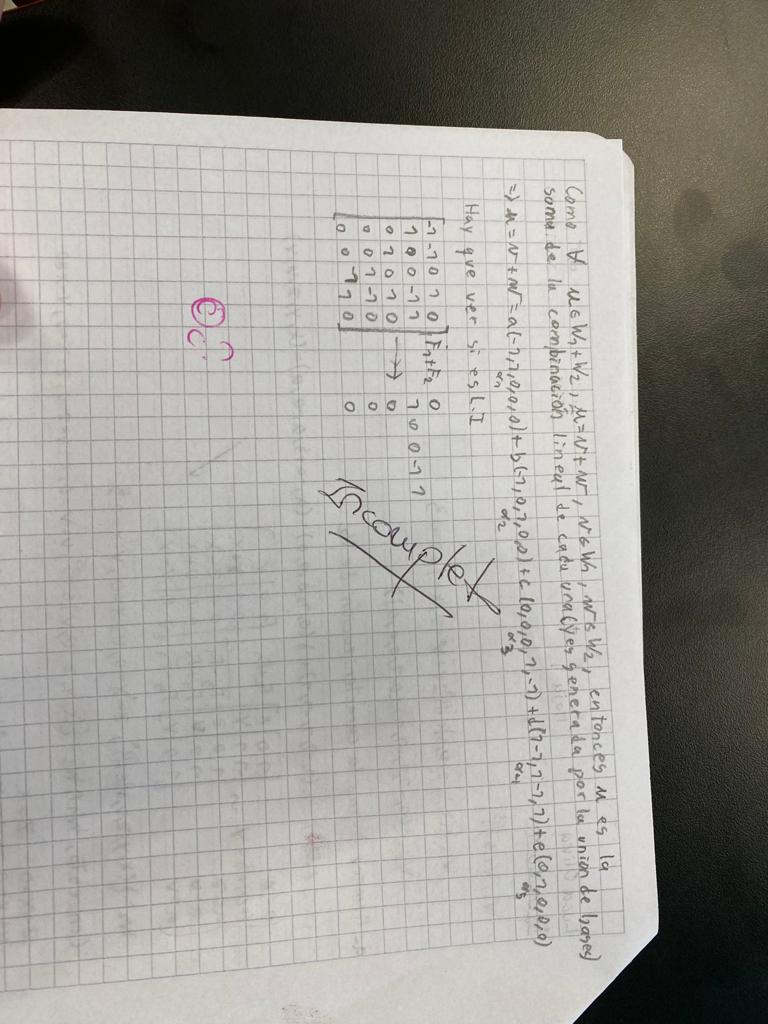 Como ∀ u∈W1+W2, u=v+w, v∈W1, w∈W2, entonces u es la
suma de la combinación lineal de cada una (y es generada por la unión de bases)
=> u=v+w=a(-1,1,0,0,0)+b(-1,0,1,0,0)+c(0,0,0,1,-1)+d(1-1,1-1,1)+e(0,1,0,0,0)
α1 α2 α3 α4 α5
Hay que ver si es L.I
-1 -1 0 1 0 F1+F2 0
1 0 0 -1 1 1 0 0 -1 1
0 1 0 1 0 → 0
0 0 1 -1 0 0
0 0 -1 1 0 0
Incomplet